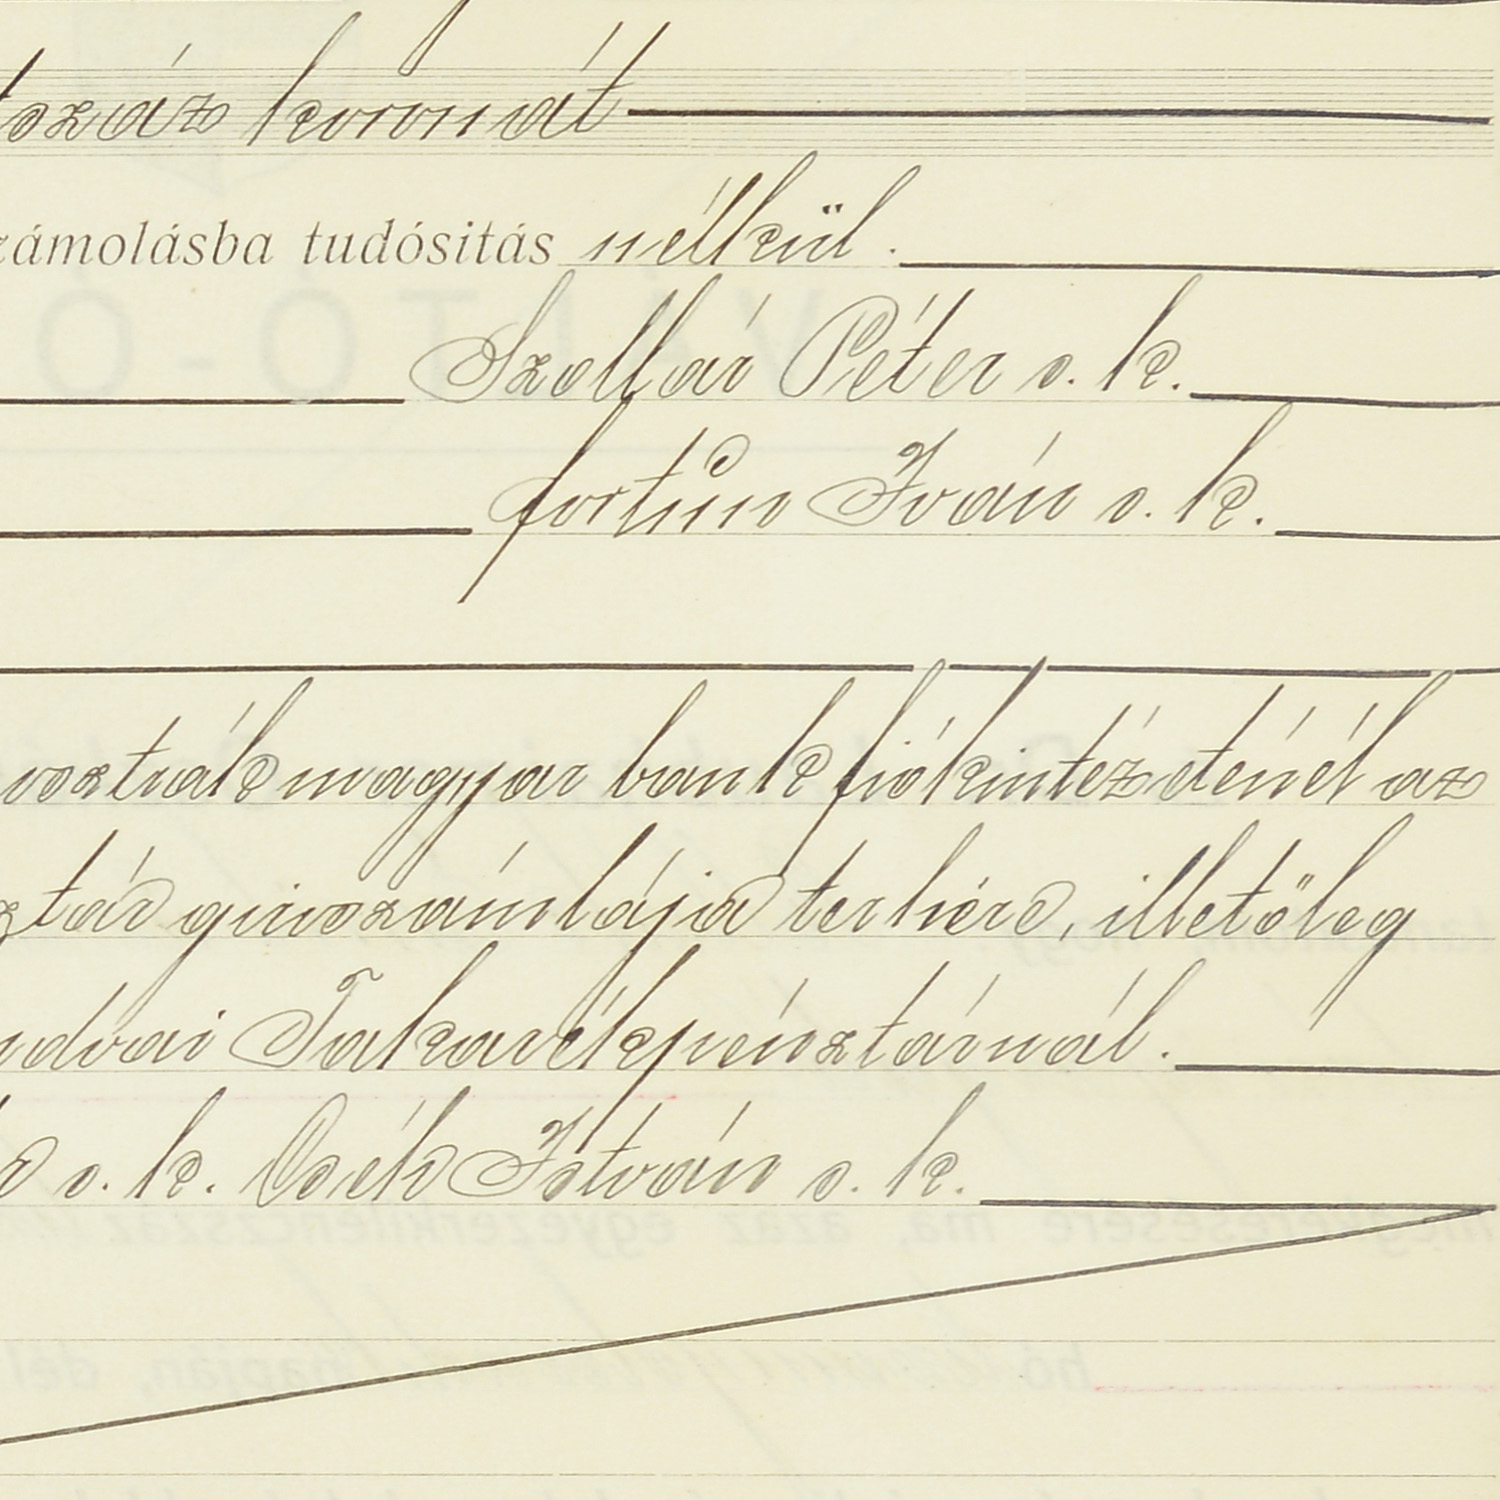 száz koronát
számolásba tudósitás nélkül.
Szollár Péter s. k.
fortun Iván s. k.
osztrák magyar bank fiókintézeténél az
girószámlája terhére, illetőleg
udvai Takarékpénztárnál.
s. k. Cséh István s. k.